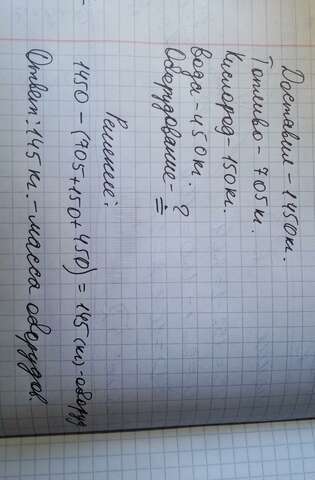 Доставил - 1450кг.
Топливо - 705кг.
Кислород - 150кг.
вода - 450кг.
Оборудование - ?
Решение:
1450 - (705+150+450) = 145 (кг) - оборуд
Ответ: 145 кг. - масса оборудов.